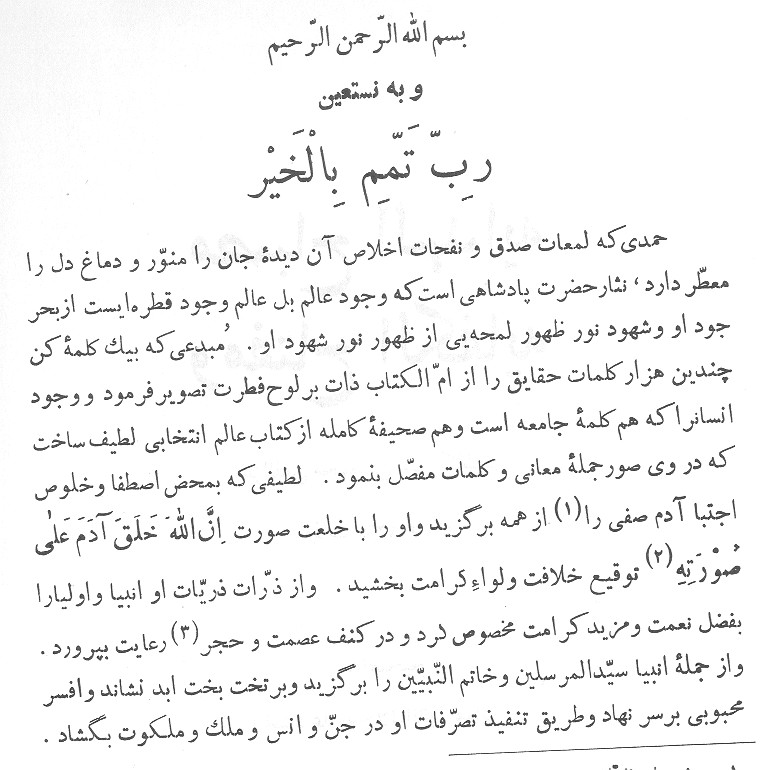 بسم الله الرّحمن الرّحیم
و به نستعین
ربِّ تَمّمِ بِالْخَیْر
حمدی که لمعات صدق و نفحات اخلاص آن دیدهٔ جان را منوّر و دماغ دل را
معطّر دارد، نثار حضرت پادشاهی است که وجود عالم بل عالم وجود قطره‌ایست از بحر
جود او و شهود نور ظهور لمحه‌یی از ظهور نور شهود او. مُبدعی که بیك کلمهٔ کن
چندین هزار کلمات حقایق را از امّ الکتاب ذات بر لوح فطرت تصویر فرمود و وجود
انسانرا که هم کلمهٔ جامعه است و هم صحیفهٔ کامله از کتاب عالم انتخابی لطیف ساخت
که در وی صور جملهٔ معانی و کلمات مفصّل بنمود. لطیفی که بمحض اصطفا و خلوص
اجتبا آدم صفی را (۱) از همه برگزید و او را با خلعت صورت اِنَّ اللهَ خَلَقَ آدَمَ عَلٰی
صُوْرَتِهِ (۲) توقیع خلافت و لواءِ کرامت بخشید. و از ذرّات ذریّات او انبیا و اولیا را
بفضل نعمت و مزید کرامت مخصوص کرد و در کنف عصمت و حجر (۳) رعایت بپرورد.
و از جملهٔ انبیا سیّد المرسلین و خاتم النّبیّین را برگزید و بر تخت بخت ابد نشاند و افسر
محبوبی بر سر نهاد و طریق تنفیذ تصرّفات او در جنّ و انس و ملك و ملکوت بگشاد.